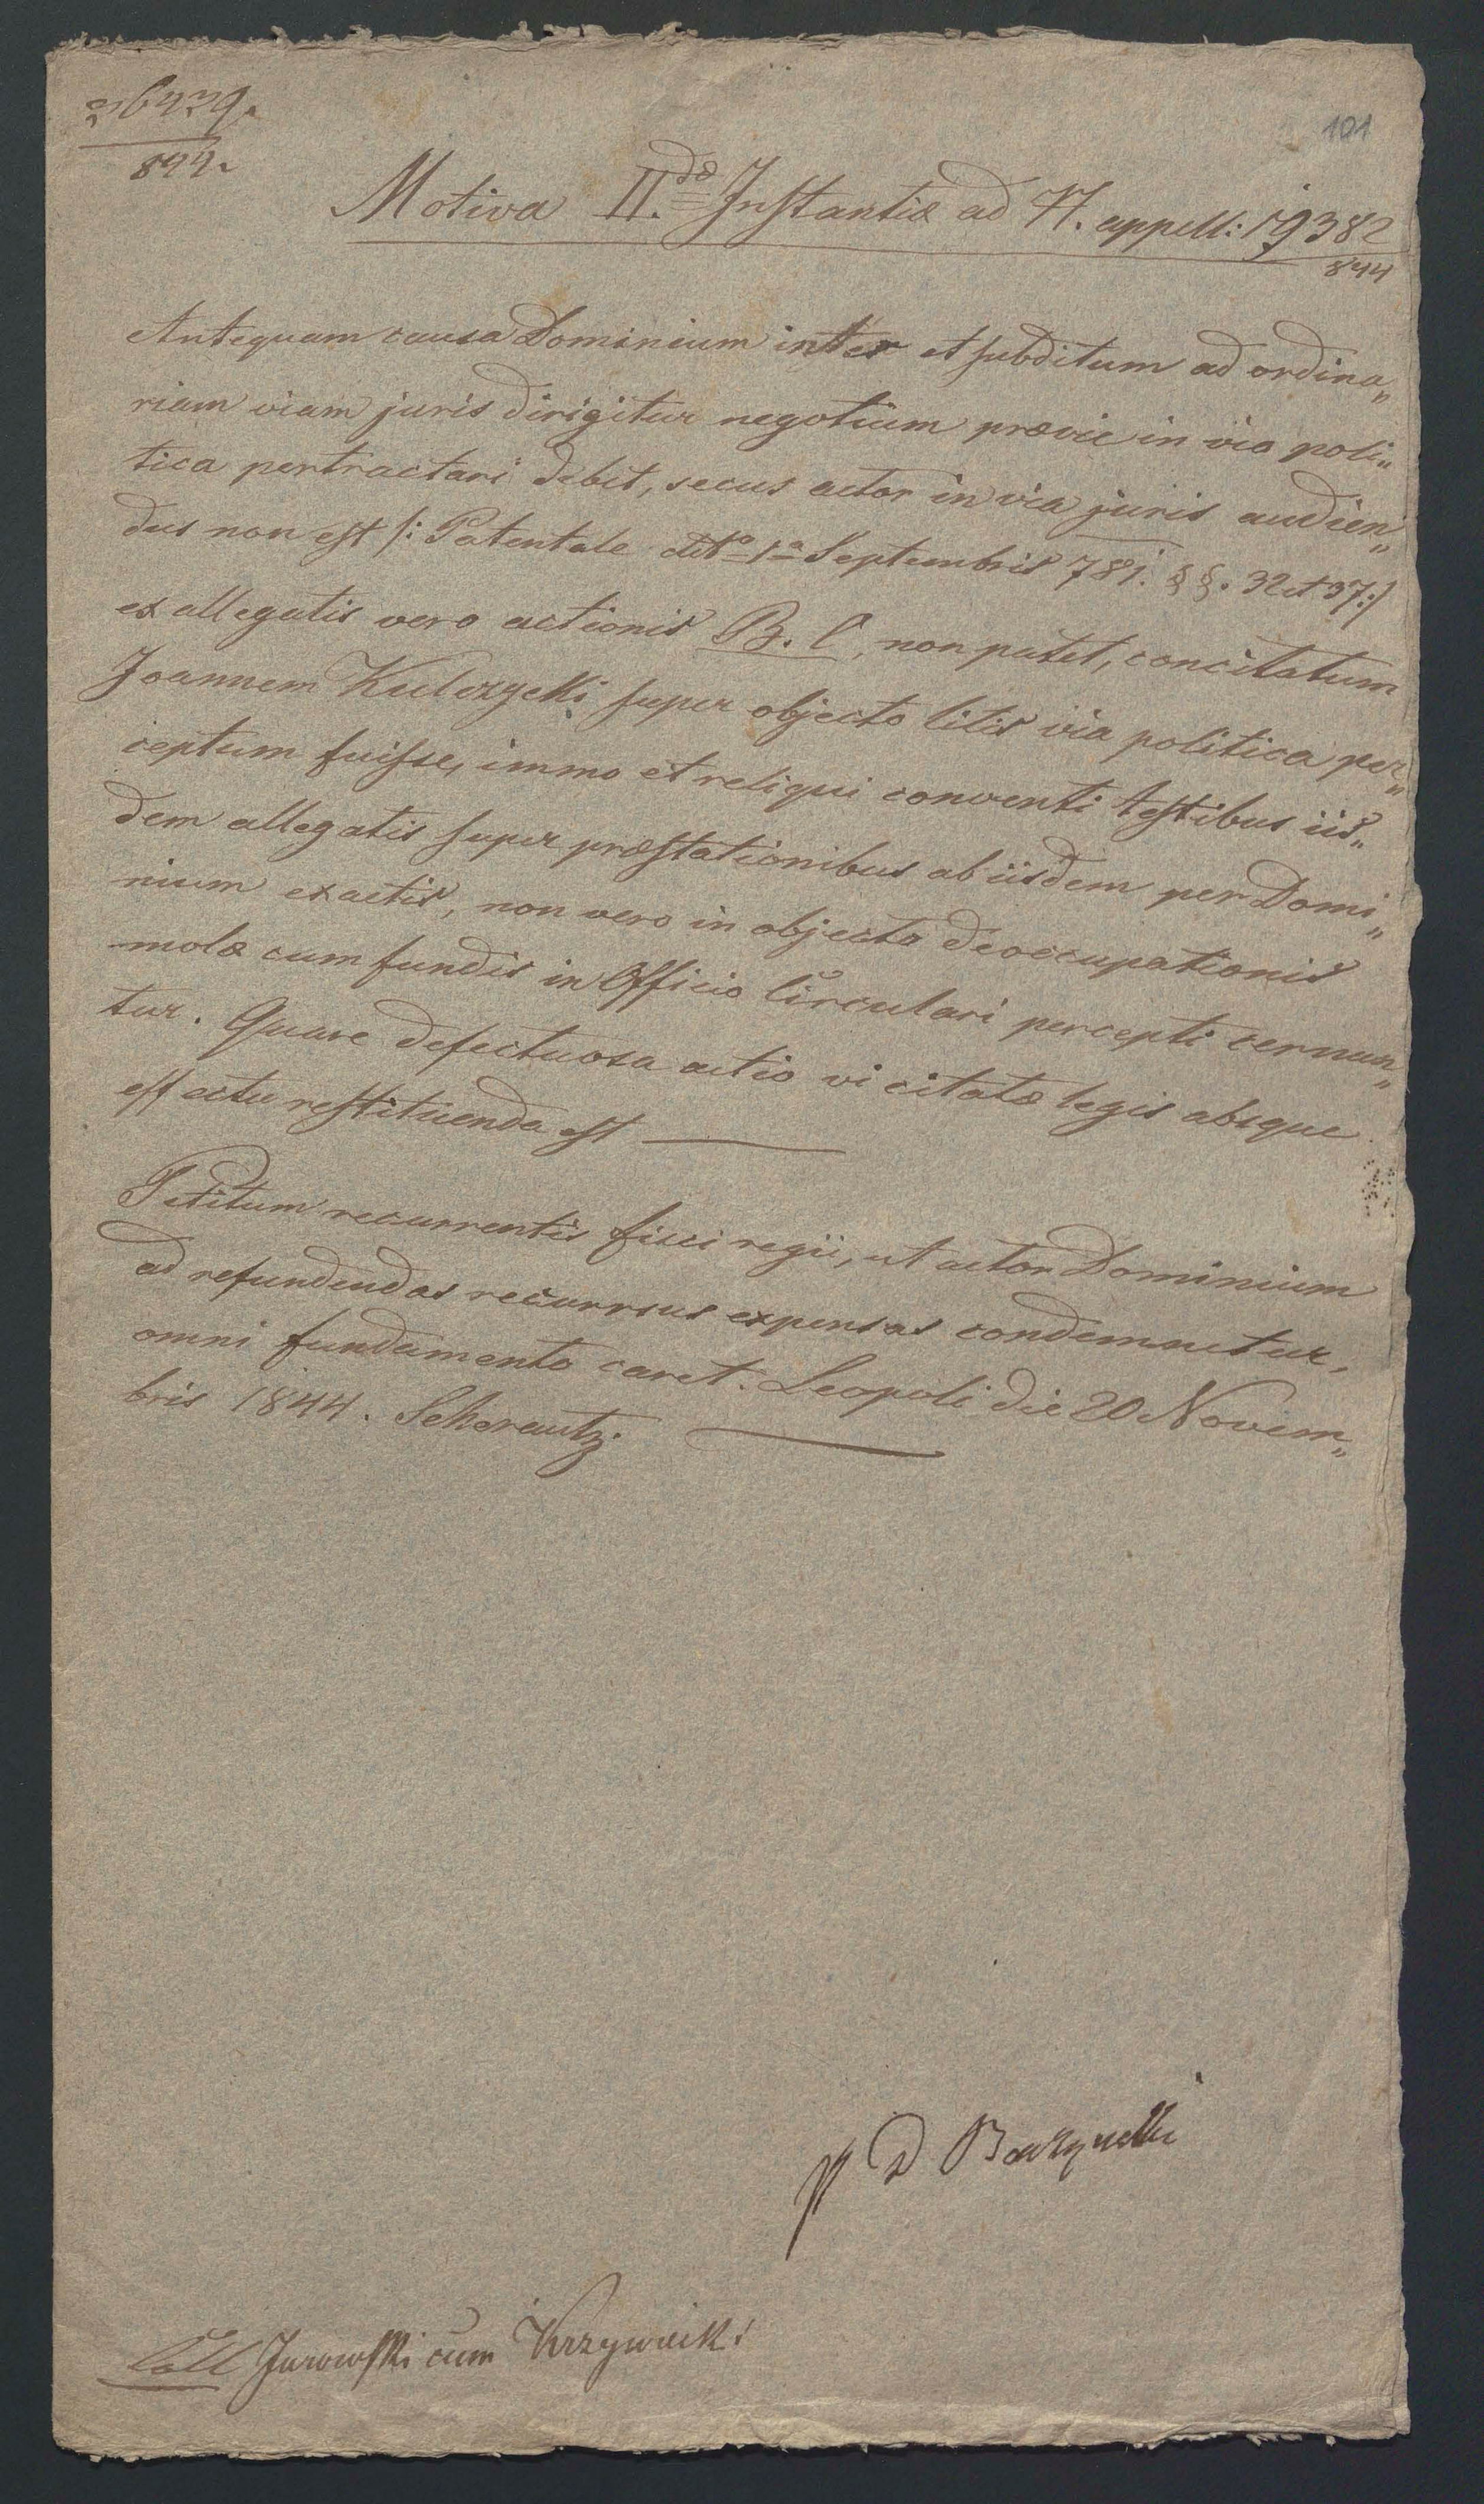 26429.
844.
101
Motiva II.dæ Instantiæ ad N. appell: 19382
844
Antequam causa Dominium inter et subditum ad ordina„
riam viam juris dirigitur negotium prævie in via poli„
tica pertractari debet, secus actor in via juris audien„
dus non est /: Patentale ddto 1a Septembris 781. §§. 32 et 37:/
ex allegatis vero actionis B. C, non patet, concitatum
Joannem Kulczycki super objecto litis via politica per„
ceptum fuisse, immo et reliqui conventi testibus iis„
dem allegatis super præstationibus ab iisdem per Domi„
nium exactis, non vero in objecto deoccupationis
molæ cum fundis in Officio Circulari percepti cernun„
tur. Quare defectuosa actio vi citatæ legis absque
effectu restituenda est
Petitum recurrentis fisci regii, ut actor Dominium
ad refundendas recursus expensas condemnetur,
omni fundamento caret. Leopoli die 20 Novem„
bris 1844. Scherautz.
D
Coll Jurowski cum Krzywicki